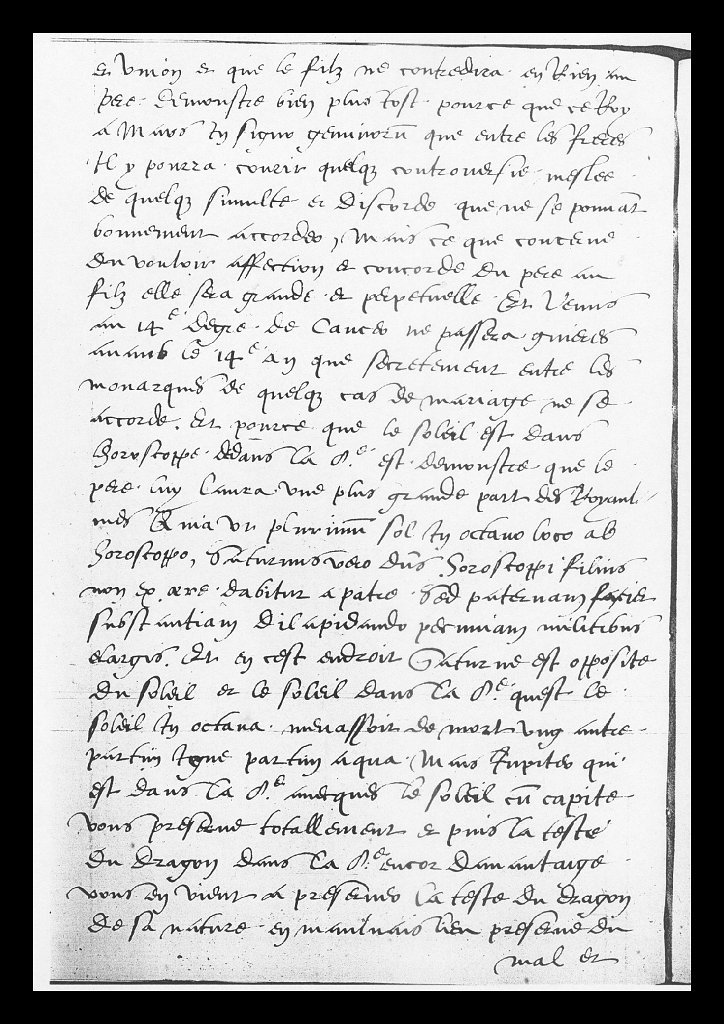 et union et que le filz ne contredira en Rien au
pere. demonstre bien plus tost. pource que ce Roy
a Mars in signo geminorū que entre les freres
Il y pourra courir quelq controuersie. meslee
de quelq simulte et discorde que ne se pouuāt
bonnement accorder, Mais ce que concerne
du vouloir affection et concorde du pere au
filz elle sera grande et perpetuelle. Et Venus
au 14e degre de Cancer ne passera guieres
auant le 14e an que secretement entre les
monarques de quelq cas de mariaige ne se
accorde. Et pource que le soleil est dans
horoscoppe dedans la 8.e est demonstre que le
pere luy laura vne plus grande part des Royaul-
mes Quia vt plurimū sol in octauo loco ab
horoscoppo, Saturnus vero dūs horoscoppi filius
non ex ære dabitur a patre. Sed paternam faciet
substantiam dilapidando pecuniam militibus
elargis. Et en cest endroit Saturne est opposite
du soleil et le soleil dans la 8.e quest le
soleil in octaua menassoit de mort vng autre
partim igne partim aqua. Mais Iupiter qui
est dans la 8.e auecques le soleil cū capite
vous preserue totallement et puis la teste
du dragon dans la 8.e encor dauantaige
vous en vient a preseruer la teste du dragon
de sa nature en mauluais lieu preserue du
mal et